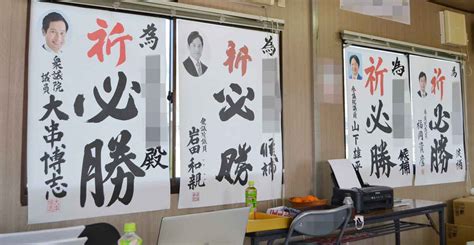 為
祈
必勝
殿
衆議院
議員
大串博志
為
祈
必勝
候補
衆議院議員
岩田和親
為
祈
必勝
候補
参議院議員
山下雄平
為
祈
必勝
候補